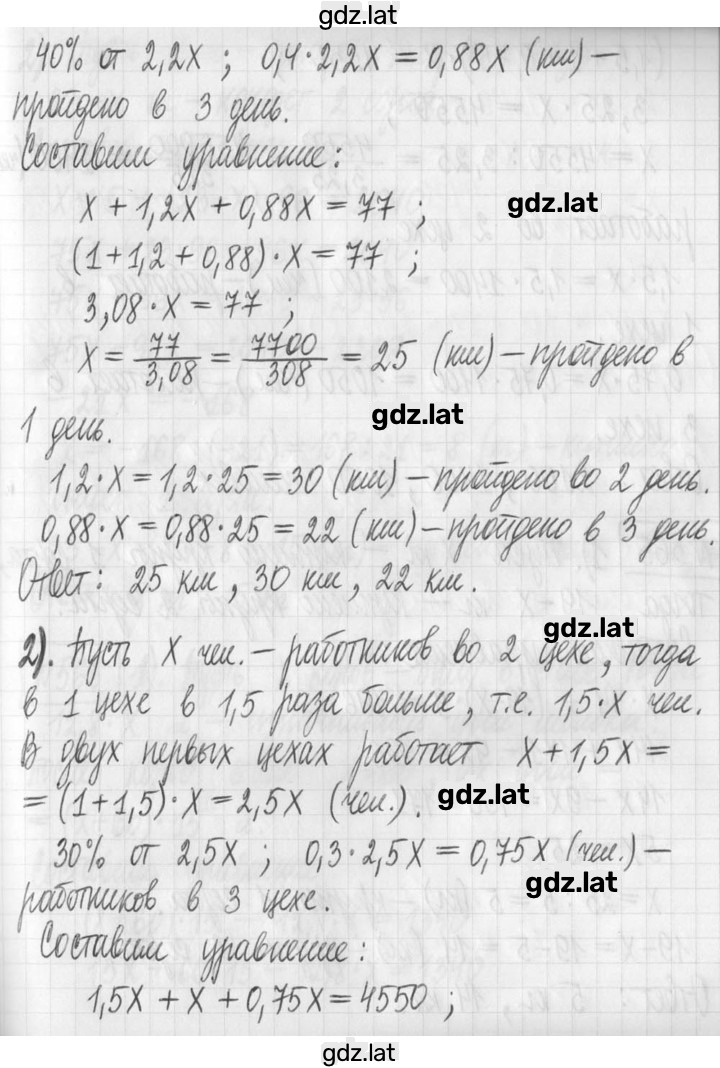 gdz.lat
40% от 2,2x ; 0,4·2,2x = 0,88x (км) –
пройдено в 3 день.
Составим уравнение:
x + 1,2x + 0,88x = 77 ;
gdz.lat
(1+1,2+0,88)·x = 77 ;
3,08·x = 77 ;
x = 77/3,08 = 7700/308 = 25 (км) – пройдено в
gdz.lat
1 день.
1,2·x = 1,2·25 = 30 (км) – пройдено во 2 день.
0,88·x = 0,88·25 = 22 (км) – пройдено в 3 день.
Ответ: 25 км, 30 км, 22 км.
gdz.lat
2). Пусть x чел. – работников во 2 цехе, тогда
в 1 цехе в 1,5 раза больше, т.е. 1,5·x чел.
В двух первых цехах работает x + 1,5x =
= (1+1,5)·x = 2,5x (чел.).
gdz.lat
30% от 2,5x ; 0,3·2,5x = 0,75x (чел.) –
gdz.lat
работников в 3 цехе.
Составим уравнение:
1,5x + x + 0,75x = 4550 ;
gdz.lat